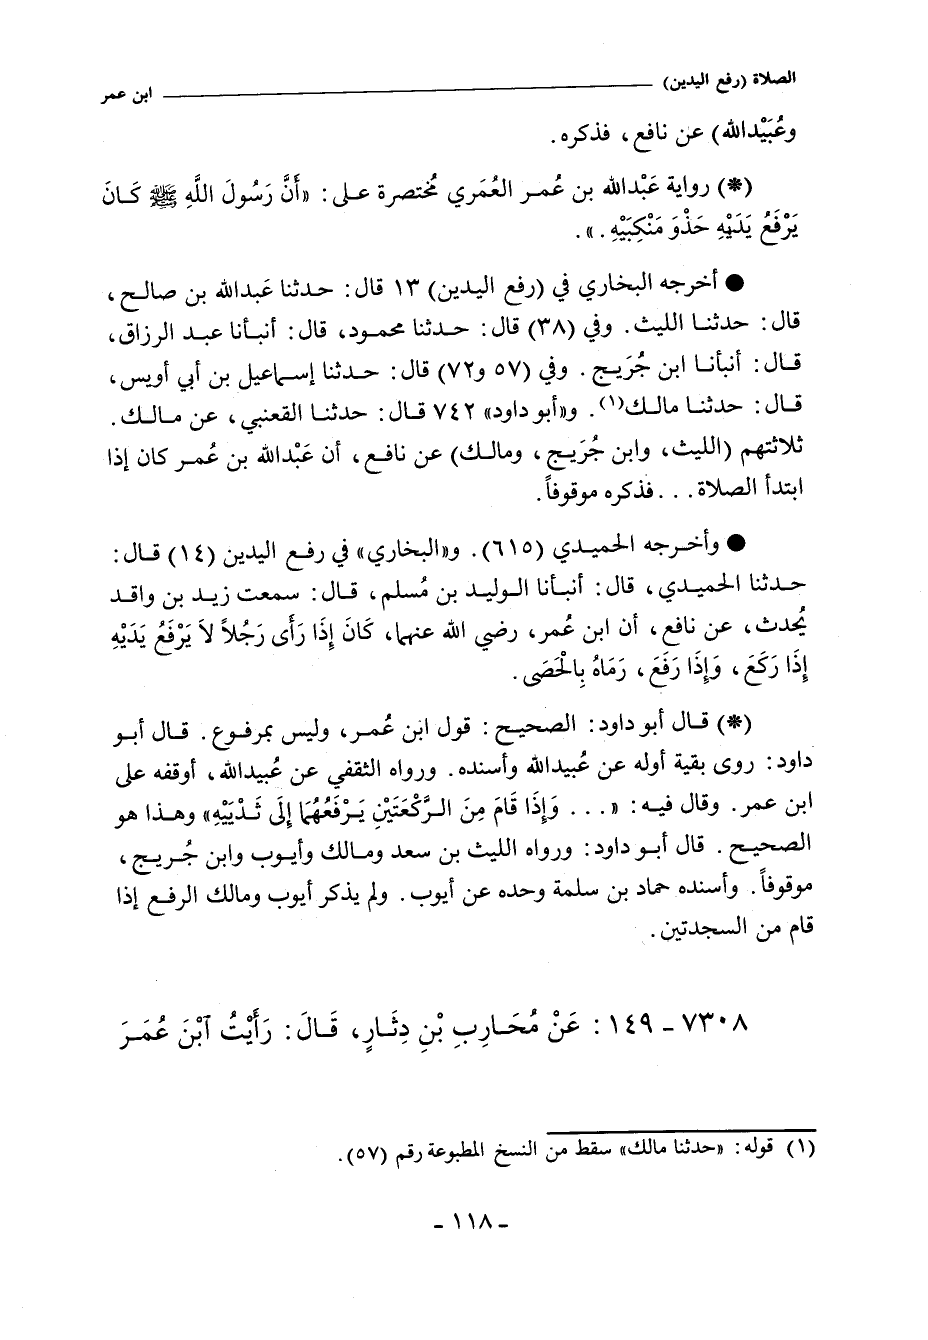 الصلاة (رفع اليدين) ابن عمر
وعُبَيْدالله) عن نافع، فذكره.
(*) رواية عَبْدالله بن عُمر العُمَري مُختصرة على: «أَنَّ رَسُولَ اللَّهِ ﷺ كَانَ
يَرْفَعُ يَدَيْهِ حَذْوَ مَنْكِبَيْهِ.».
● أخرجه البخاري في (رفع اليدين) ١٣ قال: حدثنا عَبدالله بن صالح،
قال: حدثنا الليث. وفي (٣٨) قال: حدثنا محمود، قال: أنبأنا عبد الرزاق،
قال: أنبأنا ابن جُرَيج. وفي (٥٧ و٧٢) قال: حدثنا إسماعيل بن أبي أويس،
قال: حدثنا مالك(١). و«أبو داود» ٧٤٢ قال: حدثنا القعنبي، عن مالك.
ثلاثتهم (الليث، وابن جُرَيج، ومالك) عن نافع، أن عَبْدالله بن عُمر كان إذا
ابتدأ الصلاة... فذكره موقوفاً.
● وأخرجه الحميدي (٦١٥). و«البخاري» في رفع اليدين (١٤) قال:
حدثنا الحميدي، قال: أنبأنا الوليد بن مُسلم، قال: سمعت زيد بن واقد
يُحدث، عن نافع، أن ابن عُمر، رضي الله عنهما، كَانَ إِذَا رَأَى رَجُلاً لاَ يَرْفَعُ يَدَيْهِ
إِذَا رَكَعَ، وَإِذَا رَفَعَ، رَمَاهُ بِالْحَصَى.
(*) قال أبو داود: الصحيح: قول ابن عُمر، وليس بمرفوع. قال أبو
داود: روى بقية أوله عن عُبيدالله وأسنده. ورواه الثقفي عن عُبيدالله، أوقفه على
ابن عمر. وقال فيه: «... وَإِذَا قَامَ مِنَ الرَّكْعَتَيْنِ يَرْفَعُهُمَا إِلَى ثَدْيَيْهِ» وهذا هو
الصحيح. قال أبو داود: ورواه الليث بن سعد ومالك وأيوب وابن جُريج،
موقوفاً. وأسنده حماد بن سلمة وحده عن أيوب. ولم يذكر أيوب ومالك الرفع إذا
قام من السجدتين.
٧٣٠٨ - ١٤٩: عَنْ مُحَارِبِ بْنِ دِثَارٍ، قَالَ: رَأَيْتُ آبْنَ عُمَرَ
(١) قوله: «حدثنا مالك» سقط من النسخ المطبوعة رقم (٥٧).
- ١١٨ -